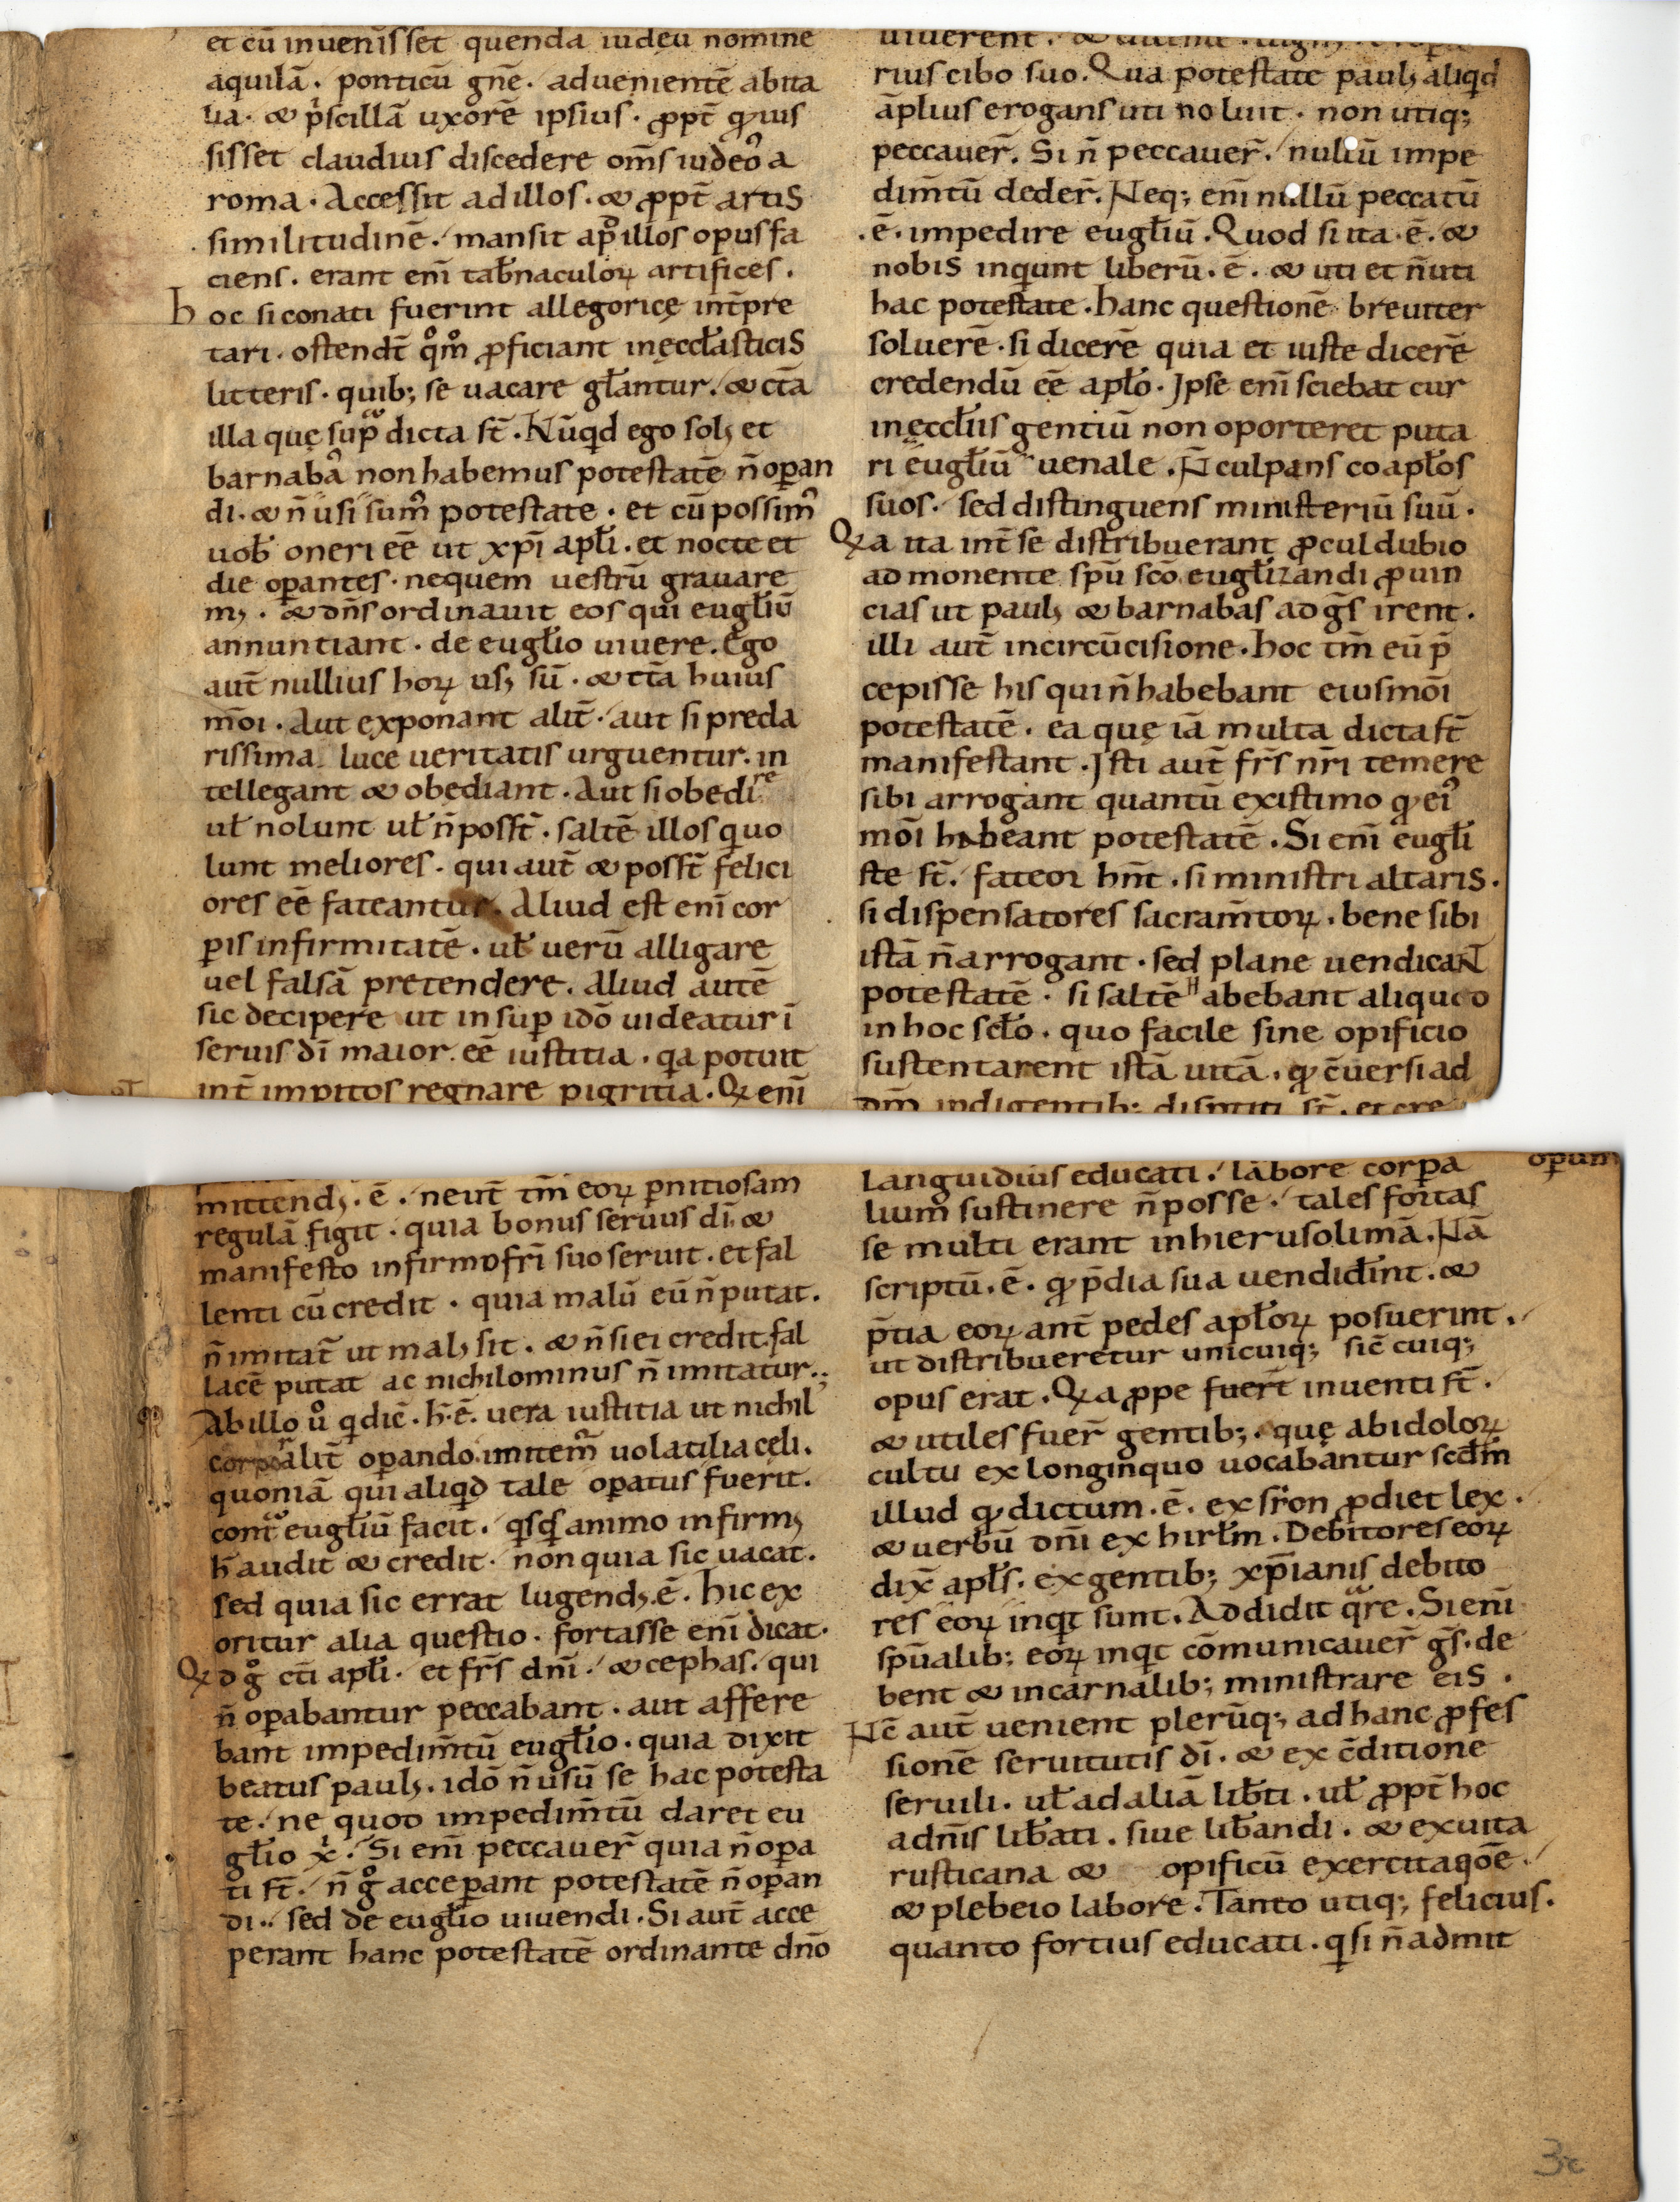 et cū inuenisset quendā iudeū nomine
aquilā · ponticū gn̄e · aduenientē ab ita
lia · & p̓scillā uxorē ipsius · ꝓpt̄ qđ ius
sisset claudius discedere om̄s iudeoꝰ a
roma · Accessit ad illos · & ꝓpt̄ artis
similitudinē · mansit ap̓ illos opus fa
ciens · erant eni̅ tab̄naculoꝝ artifices ·
hoc si conati fuerint allegoricę int̄pre
tari · ostendt̄ qͦm̊ ꝓficiant in ęcclَasticis
litteris · quib; se uacare gl̄antur · & ct̄a
illa quę sup̄ dicta st̄ · Nūqd ego solꝰ et
barnabaꝰ non habemus potestatē n̄ oꝑan
di · & n̄ usi sumꝰ potestate · et cū possimꝰ
uob̄ oneri eē ut xp̄i apl̄i · et nocte et
die oꝑantes · ne quem uestrū grauare
mꝰ · & dn̄s ordinauit eos qui eugl̄iū
annuntiant · de eugl̄io uiuere · Ego
aut̄ nullius hoꝝ usꝰ sū · & ct̄a huius
m̄oi · Aut exponant alit̄ · aut si precla
rissima luce ueritatis urguentur · in
tellegant & obediant · Aut si obedire
ul̄ nolunt ul̄ n̄ posst̄ · saltē illos qui uo
lunt meliores · qui aut̄ & posst̄ felici
ores eē fateantur · Aliud est eni̅ cor
ꝑis infirmitatē · ul̄ uerū alligare
uel falsā pretendere · Aliud autē
sic decipere ut insuꝑ idō uideatur ī
seruis dī maior eē iustitia · qa potuit
int̄ imp̄itos regnare pigritia · Qꝫ eni̅
uiuerent ·
rius cibo suo · Qua potestate paulꝰ aliqd
āplius erogans uti noluit · non utiq;
peccauer̄ · Si n̄ peccauer̄ · nullū impe
dim̄tū deder̄ · Neq; eni̅ nullū peccatū
· ē · impedire eugl̄iū · Quod si ita · ē · &
nobis inquiunt liberū · ē · & uti et n̄ uti
hac potestate · hanc questionē breuiter
soluerē · si dicerē quia et iuste dicerē
credendū eē apl̄o · Ipse eni̅ sciebat cur
in ęccl̄iis gentiū non oporteret puta
ri eugl̄iū uenale · N̄ culpans coapl̄os
suos · sed distinguens ministeriū suū ·
Qꝫa ita int̄ se distribuerant ꝓcul dubio
admonente sp̄u sc̄o eugl̄izandi ꝓuin
cias ut paulꝰ & barnabas ad gs̄ irent ·
illi aut̄ in circūcisione · hoc tm̄ eū p̄
cepisse his qui n̄ habebant eiusmōi
potestatē · ea quę iā multa dicta st̄
manifestant · Isti aut̄ frs̄ nr̄i temere
sibi arrogant quantū existimo qđ eiꝰ
mōi habeant potestatē · Si eni̅ eugl̄i
ste st̄ · fateor hn̄t · si ministri altaris ·
si dispensatores sacram̄toꝝ · bene sibi
istā n̄ arrogant · sed plane uendicant
potestatē · si saltē habebant aliquid
in hoc scl̄o · quo facile sine opificio
sustentarent istā uitā · qđ c̄uersi ad
dm̄ indigentib; disptiti st̄ · et cre
mittendꝰ · ē · neut̄ tm̄ eoꝝ ꝑnitiosam
regulā figit · quia bonus seruus dī · &
manifesto infirmo fr̄i suo seruit · et fal
lenti cū credit · quia malū eū n̄ putat ·
n̄ imitat̄ ut malꝰ sit · & n̄ si ei credit fal
lacē putat ac nichilominus n̄ imitatur ·;
Ab illo uͦ q̄ diē · h̄ · ē · uera iustitia ut nichil
corporalit̄ oꝑando imitemꝰ uolatilia cęli ·
quoniā qui aliqd tale oꝑatus fuerit ·
contͣ eugl̄iū facit · qsqs animo infirmꝰ
h̄ audit & credit · non quia sic uacat ·
sed quia sic errat lugendꝰ · ē · hic ex
oritur alia questio · fortasse eni̅ dicat ·
Qꝫ d gͦ ct̄i apl̄i · et frs̄ dn̄i · & cephas · qui
n̄ oꝑabantur peccabant · aut affere
bant impedim̄tū eugl̄io · quia dixit
beatus paulꝰ · idō n̄ usū se hac potesta
te · ne quod impedim̄tū daret eu
gl̄io xi̓ · Si eni̅ peccauer̄ quia n̄ oꝑa
ti st̄ · n̄ gͦ acceꝑant potestatē n̄ oꝑan
di · sed de eugl̄io uiuendi · Si aut̄ acce
perant hanc potestatē ordinante dn̄o
languidius educati · labore corꝑa
lium sustinere n̄ posse · tales fortas
se multi erant in hierusolimā · Nā
scriptū · ē · qđ p̄dia sua uendider̄int · &
p̄tia eoꝝ ant̄ pedes apl̄oꝝ posuerint ·
ut distribueretur unicuiq; sic̄ cuiq;
opus erat · Qꝫa ꝓpe fuer̄t inuenti st̄ ·
& utiles fuer̄ gentib; · quę ab idoloꝝ
cultu ex longinquo uocabantur scd̄m
illud qđ dictum · ē · ex sr̓on ꝓdiet lex ·
& uerbū dn̄i ex hirl̄m · Debitores eoꝝ
dix̄ apl̄s · ex gentib; xp̄ianis debito
res eoꝝ inqt sunt · Addidit qͣre · Si eni̅
sp̄ualib; eoꝝ inqt cōmunicauer̄ gs̄ · de
bent & in carnalib; ministrare eis ·
Nc̄ aut̄ uenient plerūq; ad hanc ꝓfes
sionē seruitutis dī · & ex c̄ditione
seruili · ul̄ ad aliā lib̄ti · ul̄ ꝓpt̄ hoc
a dn̄is lib̄ati · siue lib̄andi · & ex uita
rusticana & opificū exercitaqōe ·
& plebeio labore · Tanto utiq; felicius ·
quanto fortius educati · qsi n̄ admit
oꝑum
3c